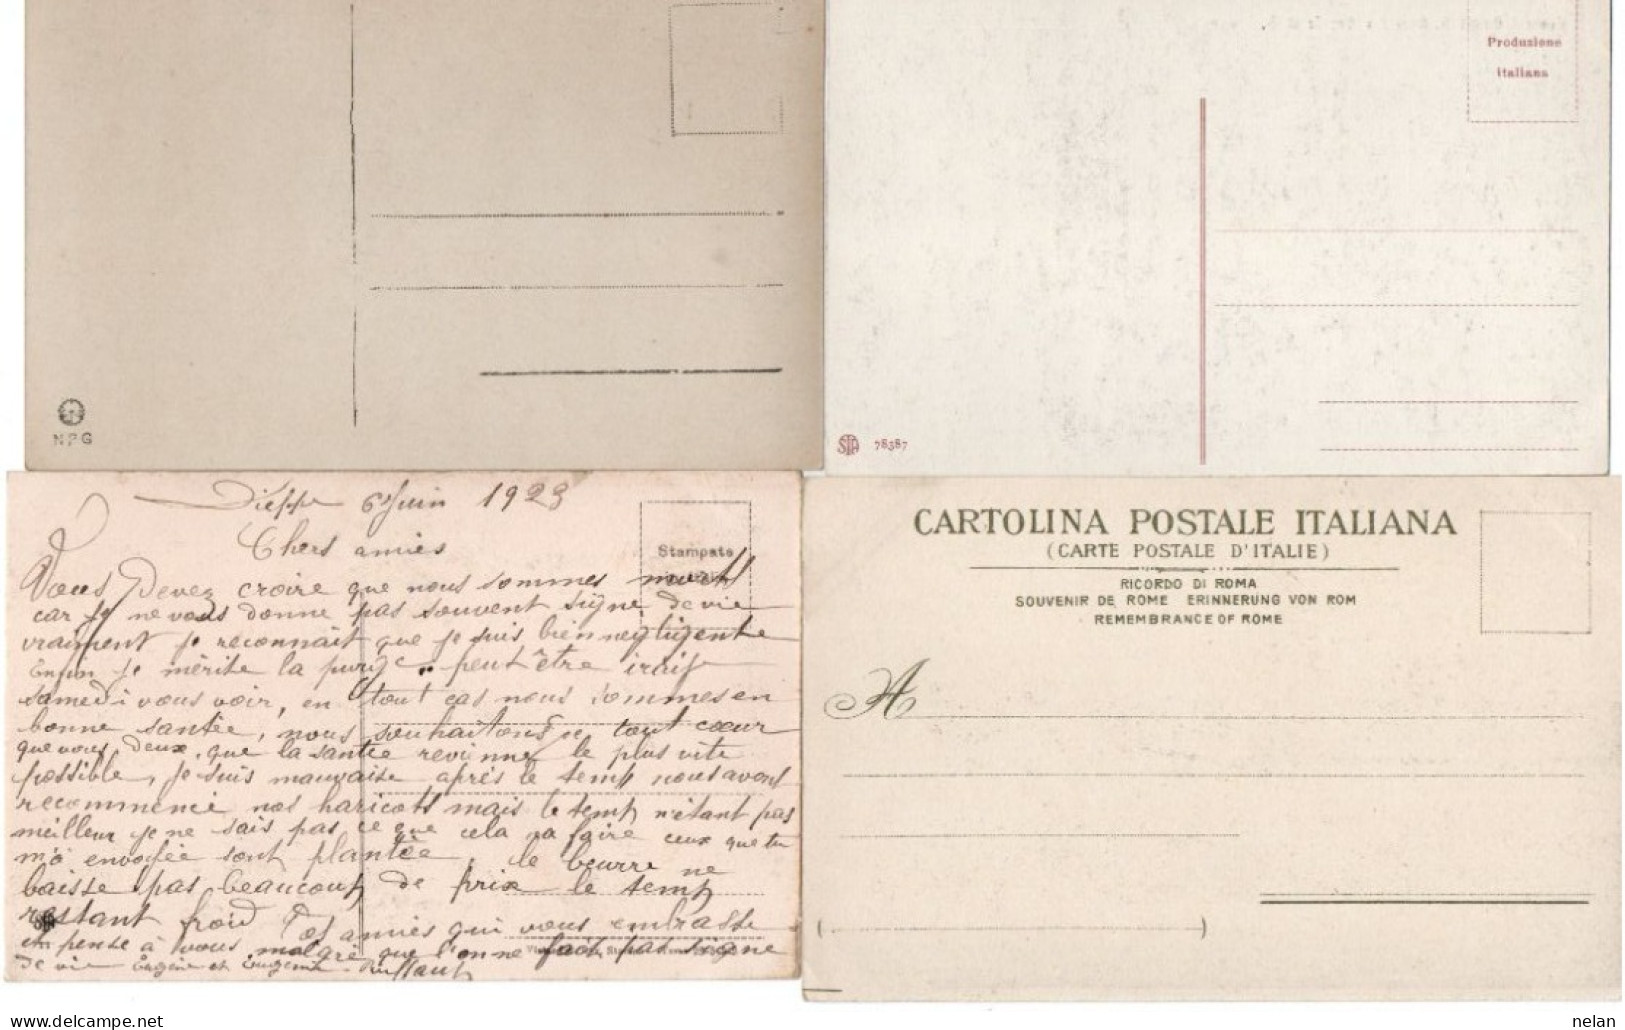 Produzione
italiana
NPG
STA 78387
Dieppe 6 Juin 1923
Chers amies
Stampate
Vous Devez croire que nous sommes morts
car je ne vous donne pas souvent signe de vie
vraiment je reconnait que je suis bien negligente
Enfin je mérite la purge .. peut être iraije
samedi vous voir, en tout cas nous sommes en
bonne santée, nous souhaitons de tout cœur
que vous deux, que la santée revienne le plus vite
possible, je suis mauvaise après le temp nous avons
recommencé nos haricots mais le temp n'étant pas
meilleur je ne sais pas ce que cela va faire ceux que tu
m'a envoyée sont plantée, le beurre ne
baisse pas beaucoup de prix le temp
restant froid Tes amies qui vous embrasse
et pense à vous malgre que l'on ne fait pas signe
de vie Eugène et
CARTOLINA POSTALE ITALIANA
(CARTE POSTALE D'ITALIE)
RICORDO DI ROMA
SOUVENIR DE ROME ERINNERUNG VON ROM
REMEMBRANCE OF ROME
A
www.delcampe.net
nelan